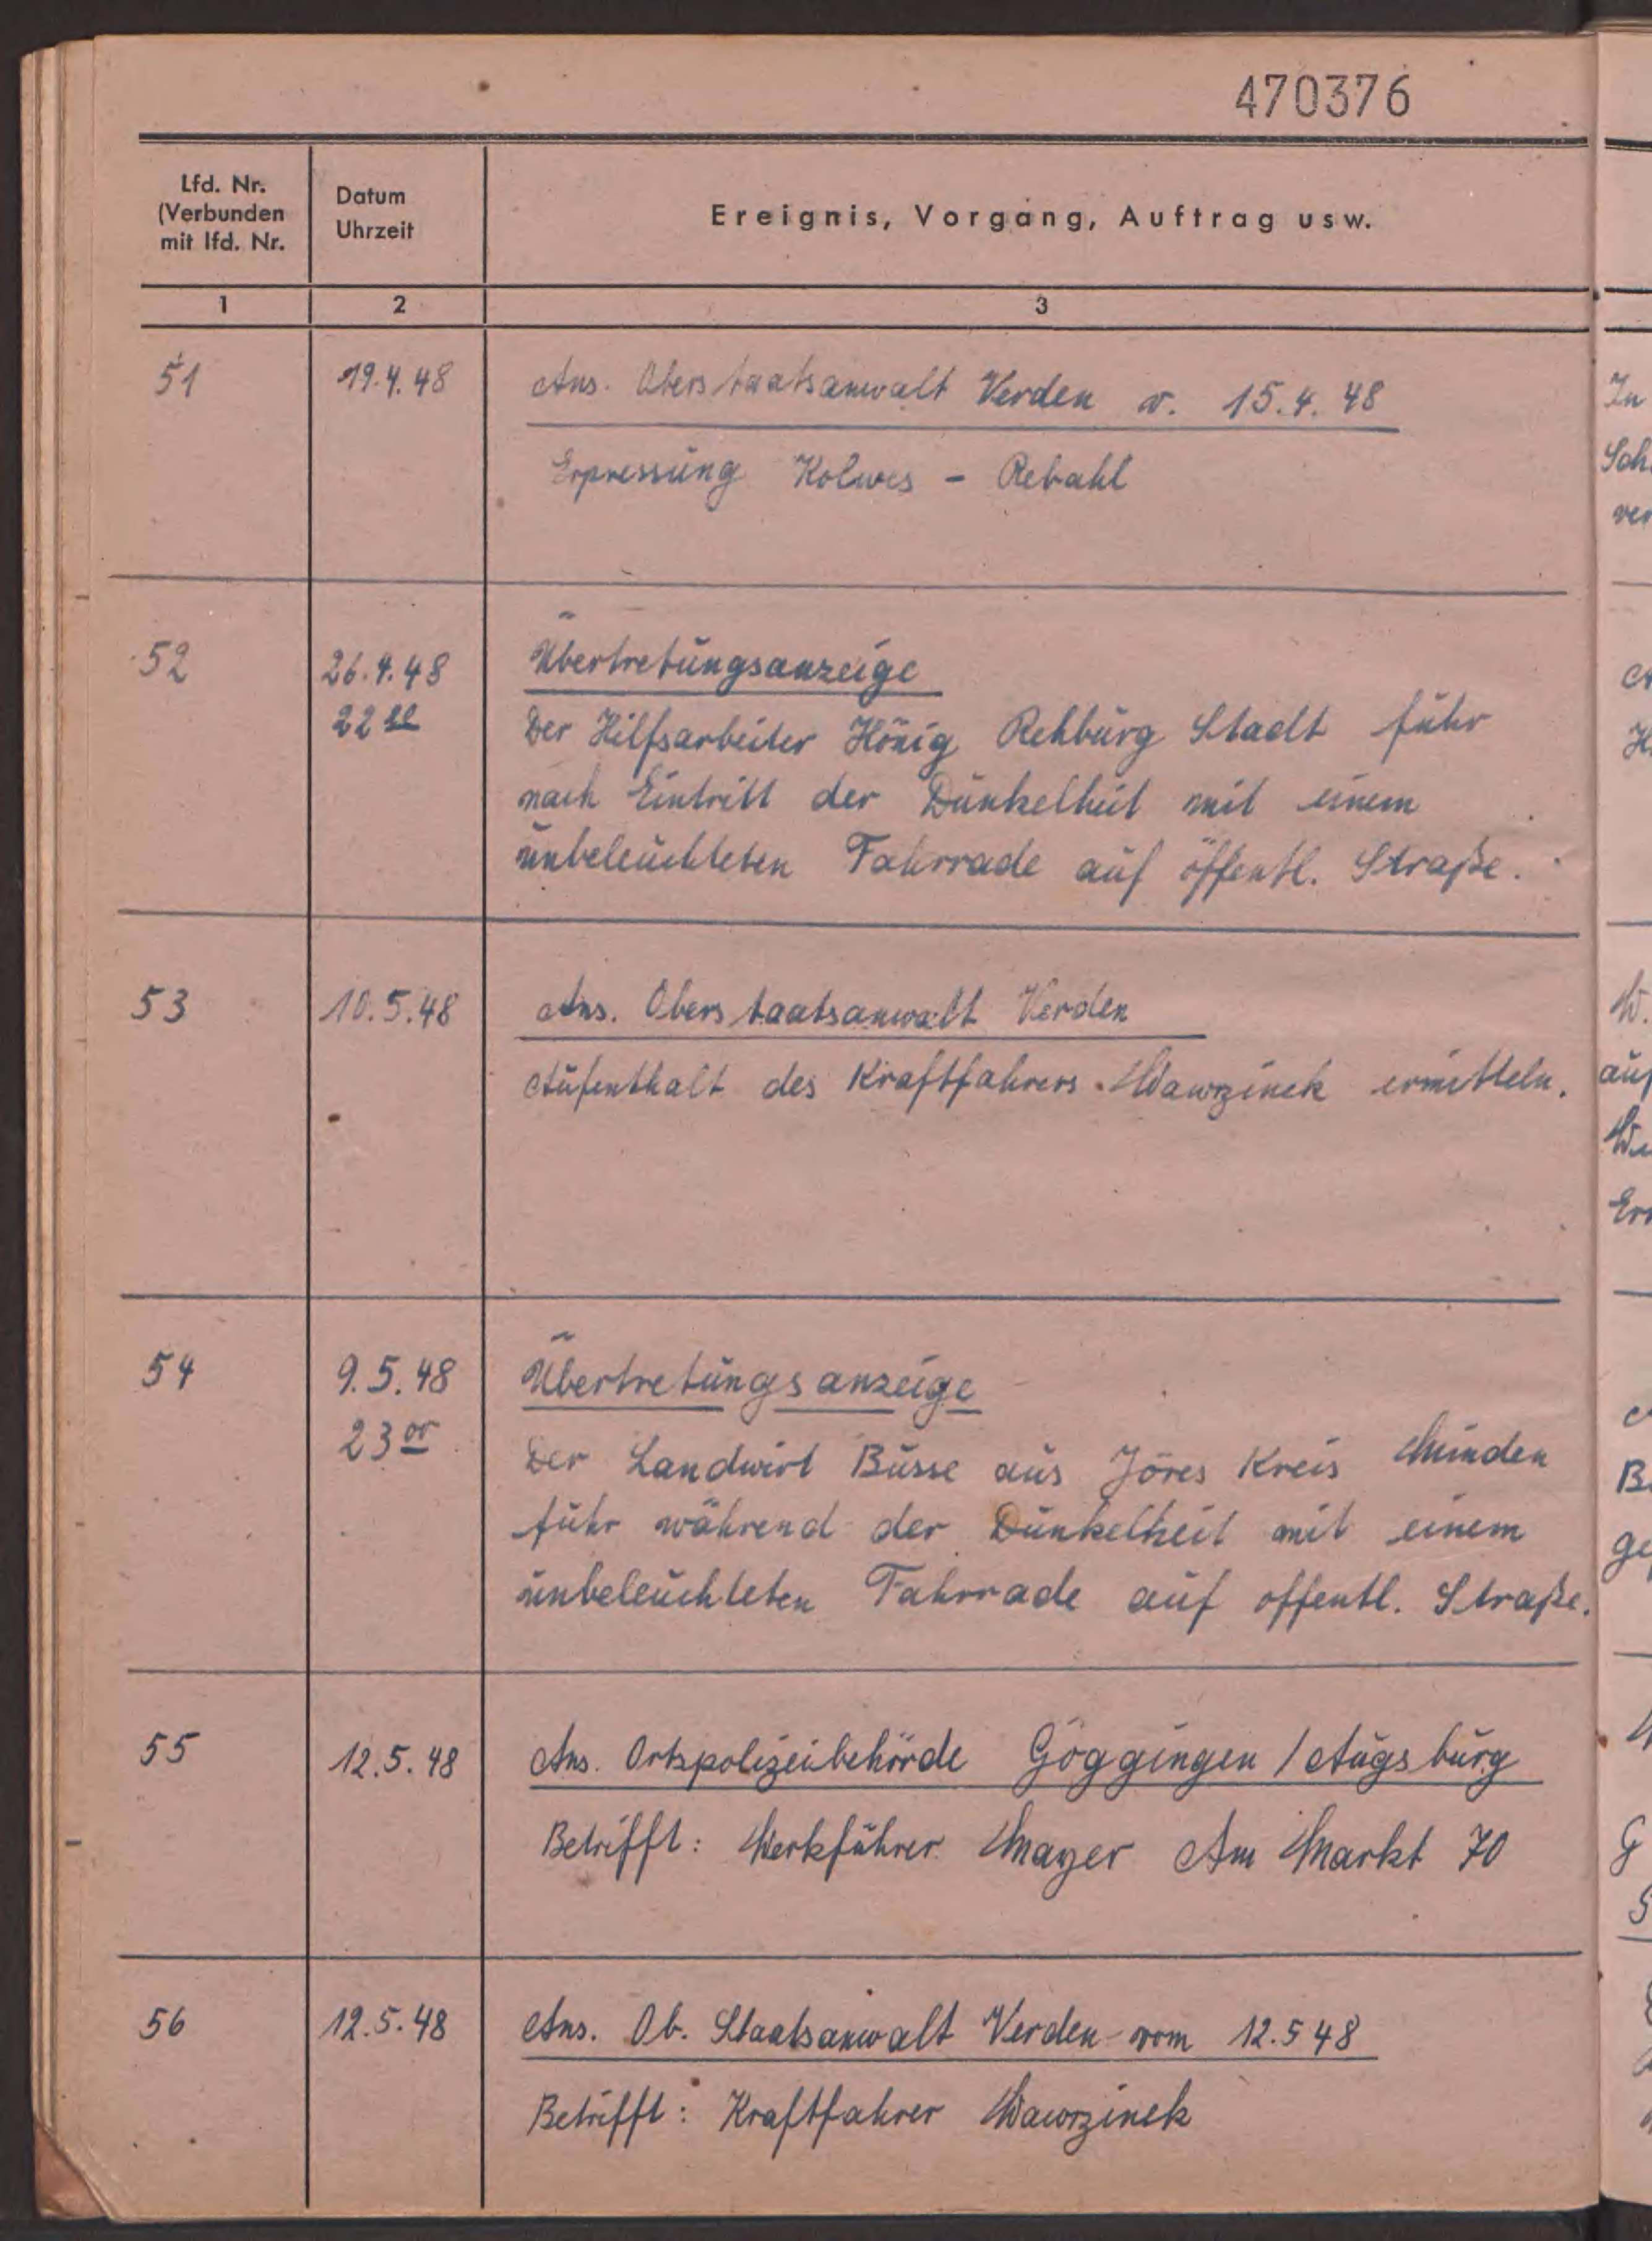 470376
Lfd. Nr.
(Verbunden
mit lfd. Nr.
Datum
Uhrzeit
Ereignis, Vorgang, Auftrag usw.
1 2 3
51 19.4.48 Ans. Oberstaatsanwalt Verden v. 15.4.48
Erpressung Kolwes - Rebahl
52 26.4.48 Übertretungsanzeige
22 Der Hilfsarbeiter König Rehburg Stadt fuhr
nach Eintritt der Dunkelheit mit einem
unbeleuchteten Fahrrade auf öffentl. Straße.
53 10.5.48 Ans. Oberstaatsanwalt Verden
Aufenthalt des Kraftfahrers Wawrzinek ermitteln.
54 9.5.48 Übertretungsanzeige
23 00 Der Landwirt Busse aus Jöres Kreis Minden
fuhr während der Dunkelheit mit einem
unbeleuchteten Fahrrade auf offentl. Straße.
55 12.5.48 Ans. Ortspolizeibehörde Göggingen / Augsburg
Betrifft: Werkführer Mayer Am Markt 70
56 12.5.48 Ans. Ob. Staatsanwalt Verden vom 12.5 48
Betrifft: Kraftfahrer Wawrzinek